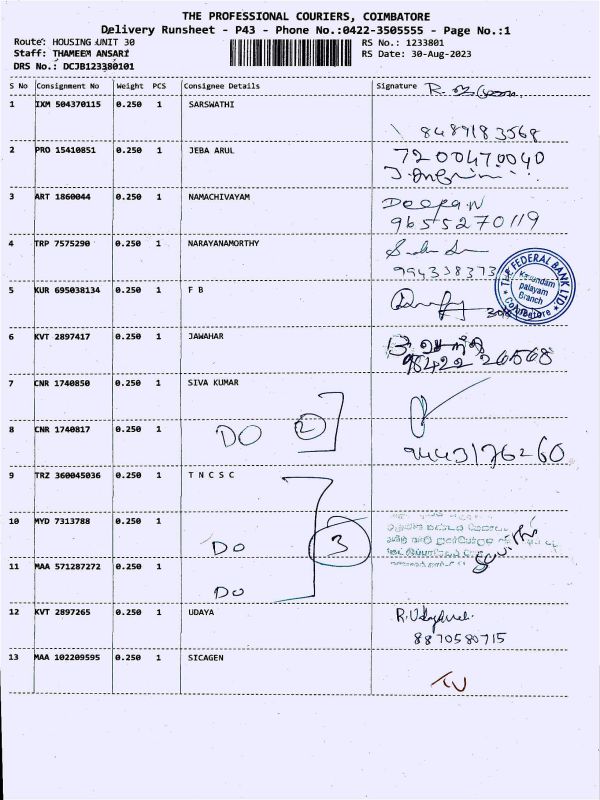 THE PROFESSIONAL COURIERS, COIMBATORE
Delivery Runsheet - P43 - Phone No.:0422-3505555 - Page No.:1
Route: HOUSING UNIT 30 RS No.: 1233801
Staff: THAMEEM ANSARI RS Date: 30-Aug-2023
DRS No.: DCJB123380101
S No Consignment No Weight PCS Consignee Details Signature
1 IXM 504370115 0.250 1 SARSWATHI
8489183568
2 PRO 15410851 0.250 1 JEBA ARUL 7200470040
3 ART 1860044 0.250 1 NAMACHIVAYAM Deepan
9655270119
4 TRP 7575290 0.250 1 NARAYANAMORTHY
THE FEDERAL BANK LTD
Kavundam
palayam
Branch
Coimbatore
5 KUR 695038134 0.250 1 F B
6 KVT 2897417 0.250 1 JAWAHAR
98422 26568
7 CNR 1740850 0.250 1 SIVA KUMAR
8 CNR 1740817 0.250 1 DO 2
9443176260
9 TRZ 360045036 0.250 1 T N C S C
10 MYD 7313788 0.250 1 DO 3
11 MAA 571287272 0.250 1 DO
12 KVT 2897265 0.250 1 UDAYA
8870580715
13 MAA 102209595 0.250 1 SICAGEN